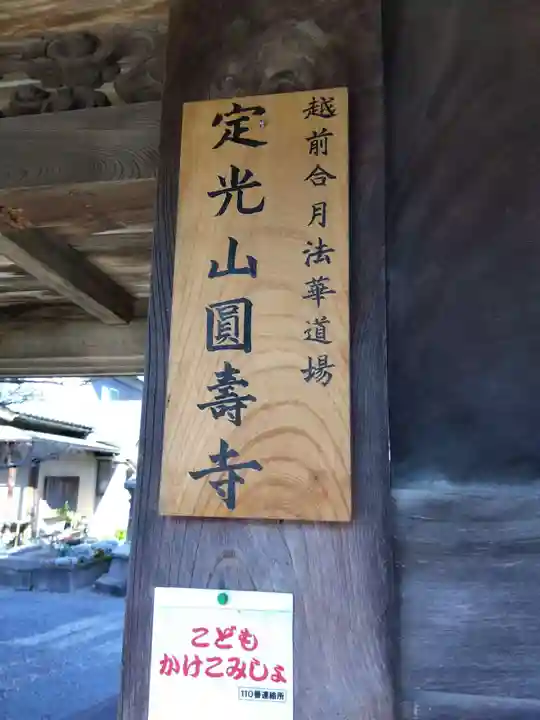 越前合月法華道場
定光山圓壽寺
こども
かけこみじょ
110番連絡所